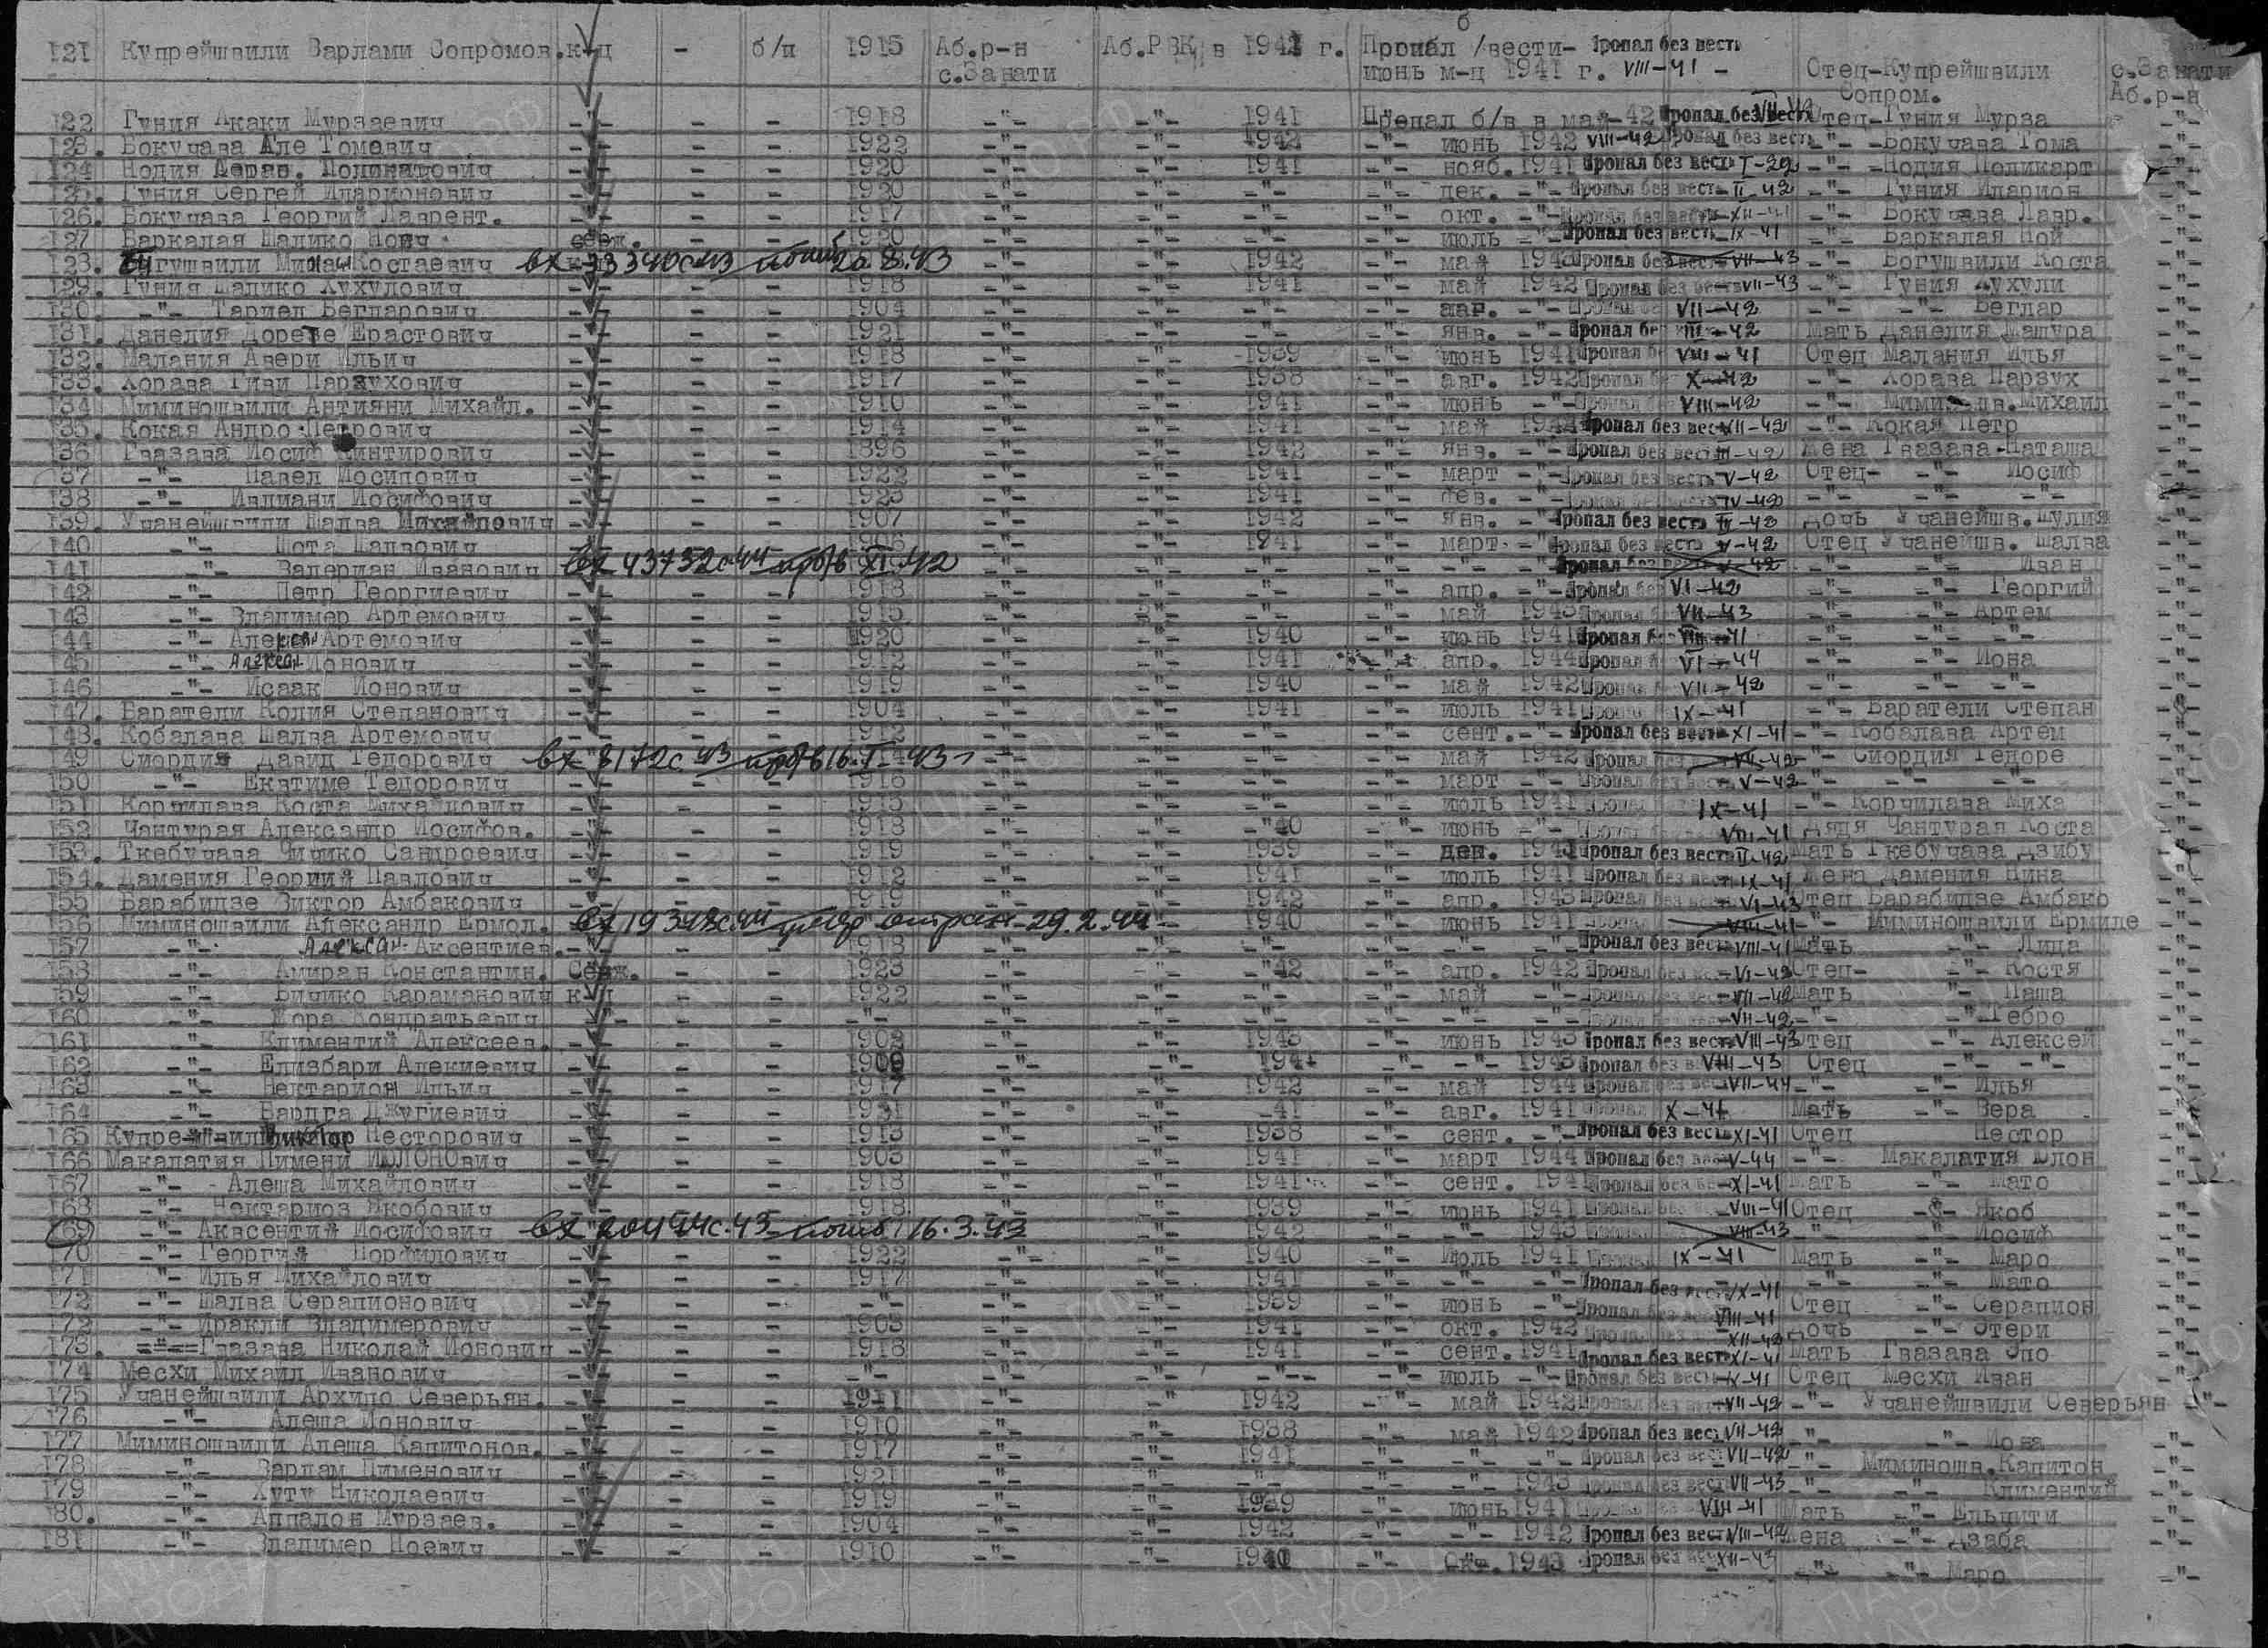 121 Купрейшвили Варлами Сопромов. к-ц - б/п 1915 Аб.р-н с.Занати Аб.РВК в 1941 г. Пропал б/вести- июнь м-ц 1941 г. Пропал без вести VIII-41 - Отец-Купрейшвили Сопром. с.Занати Аб.р-н
122 Гуния Акаки Мурзаевич -"- - - 1918 -"- -"- 1941 Пропал б/в в май-42 Пропал без вести Отец-Гуния Мурза -"-
123. Бокучава Але Томович -"- - - 1922 -"- -"- 1942 -"- июнь 1942 VIII-42 Пропал без вести -"- -Бокучава Тома -"-
124 Нодия -"- - - 1920 -"- -"- 1941 -"- нояб. 1941 Пропал без вести I-42 -"- -Нодия Поликарт -"-
125. Гуния Сергей Иларионович -"- - - 1920 -"- -"- -"- -"- дек. -"- Пропал без вести II-42 -"- Гуния Иларион -"-
126. Бокучава Георгий Лаврент. -"- - - 1917 -"- -"- -"- -"- окт. -"- Пропал без вести XII-41 -"- Бокучава Лавр. -"-
127 Баркалая Шалико Ноич серж. - - 1920 -"- -"- -"- -"- июль -"- Пропал без вести IX-41 -"- Баркалая Ной -"-
128. Костаевич вх 23340с43 погиб 20.8.43 -"- -"- 1942 -"- май Пропал без вести VII-43 -"- Богушвили Коста -"-
129. Гуния Шалико Кухулович -"- - - 1918 -"- -"- 1941 -"- май 1942 Пропал без вести VII-43 -"- Гуния Кухули -"-
130. -"- Тариел Бегларович -"- - - 1904 -"- -"- -"- -"- -"- Пропал VII-42 -"- -"- Беглар -"-
131. Данелия Ерастович -"- - - 1921 -"- -"- -"- -"- янв. -"- Пропал без III-42 Мать Данелия Машура -"-
132. Малания Авери Ильич -"- - - 1918 -"- -"- 1939 -"- июнь 1941 Пропал VIII-41 Отец Малания Илья -"-
133. Хорава Гиви Парзухович -"- - - 1917 -"- -"- 1938 -"- авг. 1942 Пропал X-42 -"- Хорава Парзух -"-
134 Миминошвили Антияни Михайл. -"- - - 1910 -"- -"- 1941 -"- июнь -"- VIII-42 -"- Михаил -"-
135. Кокая Андро Петрович -"- - - 1914 -"- -"- 1941 -"- май Пропал без вести VII-42 -"- Кокая Петр -"-
136 Гвазава Иосиф -"- - - 1896 -"- -"- 1942 -"- янв. -"- Пропал без вести III-42 Жена Гвазава-Наташа -"-
137 -"- Павел Иосипович -"- - - 1922 -"- -"- 1941 -"- март -"- Пропал без вести V-42 Отец- -"- Иосиф -"-
138 -"- Ивлиани Иосифович -"- - - 1923 -"- -"- 1941 -"- фев. -"- IV-42 -"- -"- -"- -"-
139. Учанейшвили Шалва Михайлович -"- - - 1907 -"- -"- 1942 -"- янв. -"- Пропал без вести III-42 Дочь Учанейшв. -"-
140 -"- Шота Шалвович -"- - - -"- -"- 1941 -"- март -"- Пропал без вести V-42 Отец Учанейшв. Шалва -"-
141 -"- Валериан Иванович вх 43732с44 пр б/в XI-42 -"- -"- -"- -"- -"- -"- Пропал без вести V-42 -"- -"- Иван -"-
142 -"- Петр Георгиевич -"- - - 1918 -"- -"- -"- -"- апр. -"- Пропал без VI-42 -"- -"- Георгий -"-
143 -"- Владимер Артемович -"- - - 1915 -"- -"- -"- -"- май 1943 Пропал VII-43 -"- -"- Артем -"-
144 -"- Артемович -"- - - 1920 -"- -"- 1940 -"- июнь 1941 Пропал без VIII-41 -"- -"- -"- -"-
145 -"- Алексан Ионович -"- - - 1912 -"- -"- 1941 -"- апр. 1944 Пропал VI-44 -"- -"- Иона -"-
146 -"- Исаак Ионович -"- - - 1919 -"- -"- 1940 -"- май 1942 Пропал VII-42 -"- -"- -"- -"-
147. Баратели Колия Степанович -"- - - 1904 -"- -"- 1941 -"- июль 1941 Пропал IX-41 -"- Баратели Степан -"-
148. Кобалава Шалва Артемович -"- - - 1912 -"- -"- -"- -"- сент. -"- Пропал без вести XI-41 -"- Кобалава Артем -"-
149 Сиордия Давид Тедорович вх 8172с43 пр б/в 16.I.43 г -"- -"- -"- май 1942 Пропал без вести VII-42 -"- Сиордия Тедоре -"-
150 -"- Екатиме Тедорович -"- - - 1916 -"- -"- -"- -"- март -"- Пропал без вести V-42 -"- -"- -"- -"-
151 Корчилава Коста Михайлович -"- - - 1915 -"- -"- -"- -"- июль 1941 IX-41 -"- Корчилава Миха -"-
152 Чантурая Александр Иосифов. -"- - - 1918 -"- -"- -"40 -"- июнь -"- VIII-41 Дядя Чантурая Коста -"-
153. Ткебучава Чичико Сандроевич -"- - - 1919 -"- -"- 1939 -"- дек. 1941 Пропал без вести II-42 Мать Ткебучава Дзибу -"-
154. Дамения Георгий Павлович -"- - - 1912 -"- -"- 1941 -"- июль 1941 Пропал без вести IX-41 Жена Дамения Нина -"-
155 Барабидзе Виктор Амбакович -"- - - 1919 -"- -"- 1942 -"- апр. 1943 Пропал без вести VI-43 Отец Барабидзе Амбако -"-
156 Миминошвили Александр Ермол. вх 19348с44 29.2.44 -"- 1940 -"- июнь 1941 VIII-41 -"- Миминошвили Ермиле -"-
157 -"- Алексан Аксентиев. -"- - - 1918 -"- -"- -"- -"- -"- -"- Пропал без вести VIII-41 Мать -"- Лица -"-
158 -"- Амиран Константин. Серж. - - 1923 -"- -"- -"42 -"- апр. 1942 Пропал без вести VI-42 Отец- -"- Костя -"-
159 -"- Бичико Караманович к-ц - - 1922 -"- -"- -"- -"- май -"- Пропал без вести VII-42 Мать -"- Паша -"-
160 -"- Жора Кондратьевич -"- - - -"- -"- -"- -"- -"- -"- -"- VII-42 -"- -"- Гебро -"-
161 -"- Климентий Алексеев. -"- - - -"- -"- 1943 -"- июнь 1943 Пропал без вести VIII-43 Отец -"- Алексей -"-
162 -"- Елизбари Алекиевич -"- - - 1909 -"- -"- 1941 -"- -"- 1943 Пропал без в VIII-43 Отец -"- -"- -"-
163 -"- Нектарион Ильич -"- - - 1917 -"- -"- 1942 -"- май 1944 Пропал без вести VII-44 -"- -"- Илья -"-
164 -"- Варлга Джугиевич -"- - - -"- -"- -41 -"- авг. 1941 Пропал X-41 Мать -"- Вера -"-
165 Виктор Несторович -"- - - 1913 -"- -"- 1938 -"- сент. -"- Пропал без вести XI-41 Отец Нестор -"-
166 Макалатия Пимени -"- - - 1903 -"- -"- 1941 -"- март 1944 Пропал без вести V-44 -"- Макалатия Олон -"-
167 -"- Алеша Михайлович -"- - - 1918 -"- -"- 1941 -"- сент. 1941 Пропал без вести XI-41 Мать -"- Мато -"-
168 -"- Нектариоз Якобович -"- - - 1918 -"- -"- 1939 -"- июнь 1941 Пропал без вести VIII-41 Отец -"- Якоб -"-
169 -"- Аквсентий Иосифович вх 20494с.43 погиб 16.3.43 -"- 1942 -"- -"- 1943 VIII-43 -"- -"- Иосиф -"-
170 -"- Георгий Порфилович -"- - - 1922 -"- -"- 1940 -"- июль 1941 IX-41 Мать -"- Маро -"-
171 "- Илья Михайлович -"- - - 1917 -"- -"- 1941 -"- -"- -"- Пропал без вести IX-41 -"- -"- Мато -"-
172 -"- Шалва Серапионович -"- - - -"- -"- -"- 1939 -"- июнь -"- Пропал без вести VIII-41 Отец -"- Серапион -"-
172 -"- Иракли Владимерович -"- - - 1903 -"- -"- 1941 -"- окт. 1942 XII-42 Дочь -"- Этери -"-
173. Гвазава Николай Ионович -"- - - 1918 -"- -"- 1941 -"- сент. 1941 Пропал без вести XI-41 Мать Гвазава -"-
174 Месхи Михаил Иванович -"- - - -"- -"- -"- -"- -"- июль -"- Пропал без вести IX-41 Отец Месхи Иван -"-
175 Учанейшвили Архипо Северьян. -"- - - 1911 -"- -"- 1942 -"- май 1942 Пропал без вести VII-42 -"- Учанейшвили Северьян -"-
176 -"- Алеша Ионович -"- - - 1910 -"- -"- 1938 -"- май 1942 Пропал без вести VII-42 -"- -"- Иона -"-
177 Миминошвили Алеша Капитонов. -"- - - 1917 -"- -"- 1941 -"- -"- -"- Пропал без вести VII-42 -"- Миминошв. Капитон -"-
178 -"- Варлам Пименович -"- - - 1921 -"- -"- -"- -"- -"- 1943 Пропал без вести VII-43 -"- -"- Климентий -"-
179 -"- Хуту Николаевич -"- - - 1919 -"- -"- 1939 -"- июнь 1941 VIII-41 Мать -"- Ельпити -"-
180. -"- Апалон Мурзаев. -"- - - 1904 -"- -"- 1942 -"- -"- 1942 Пропал без вести VIII-42 Жена -"- Дзаба -"-
181 -"- Владимер Ноевич -"- - - 1910 -"- -"- 1941 -"- Окт. 1943 Пропал без вести XII-43 -"- -"- Маро -"-